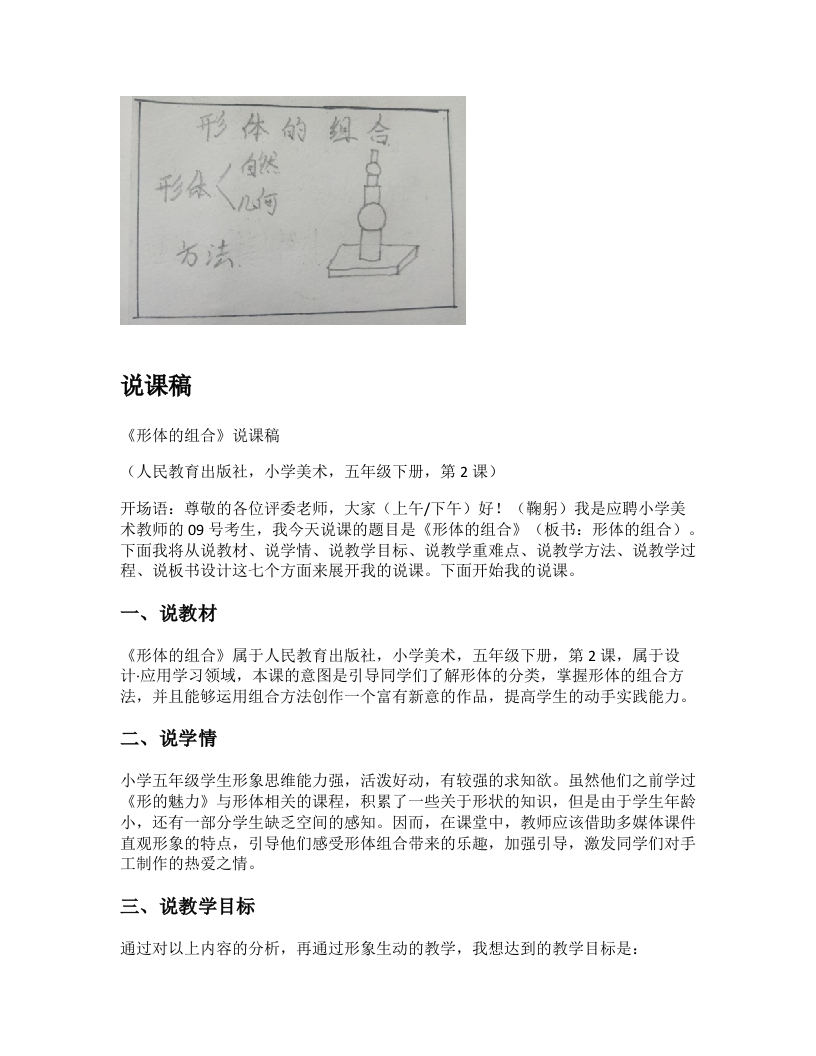 形体的组合
形体
自然
几何
方法
说课稿
《形体的组合》说课稿
（人民教育出版社，小学美术，五年级下册，第 2 课）
开场语：尊敬的各位评委老师，大家（上午/下午）好！（鞠躬）我是应聘小学美
术教师的 09 号考生，我今天说课的题目是《形体的组合》（板书：形体的组合）。
下面我将从说教材、说学情、说教学目标、说教学重难点、说教学方法、说教学过
程、说板书设计这七个方面来展开我的说课。下面开始我的说课。
一、说教材
《形体的组合》属于人民教育出版社，小学美术，五年级下册，第 2 课，属于设
计·应用学习领域，本课的意图是引导同学们了解形体的分类，掌握形体的组合方
法，并且能够运用组合方法创作一个富有新意的作品，提高学生的动手实践能力。
二、说学情
小学五年级学生形象思维能力强，活泼好动，有较强的求知欲。虽然他们之前学过
《形的魅力》与形体相关的课程，积累了一些关于形状的知识，但是由于学生年龄
小，还有一部分学生缺乏空间的感知。因而，在课堂中，教师应该借助多媒体课件
直观形象的特点，引导他们感受形体组合带来的乐趣，加强引导，激发同学们对手
工制作的热爱之情。
三、说教学目标
通过对以上内容的分析，再通过形象生动的教学，我想达到的教学目标是：